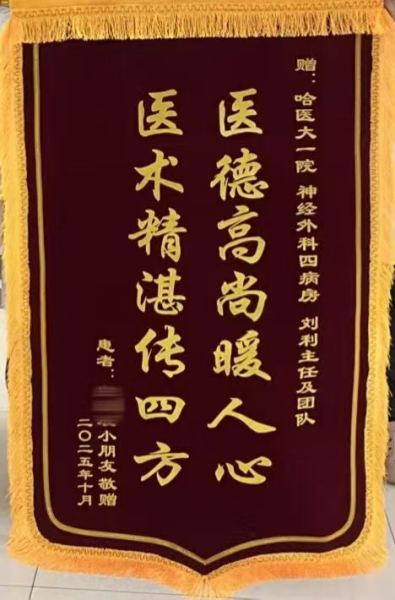 赠：哈医大一院 神经外科四病房 刘利主任及团队
医德高尚暖人心
医术精湛传四方
患者： 小朋友 敬赠
二〇二五年十月